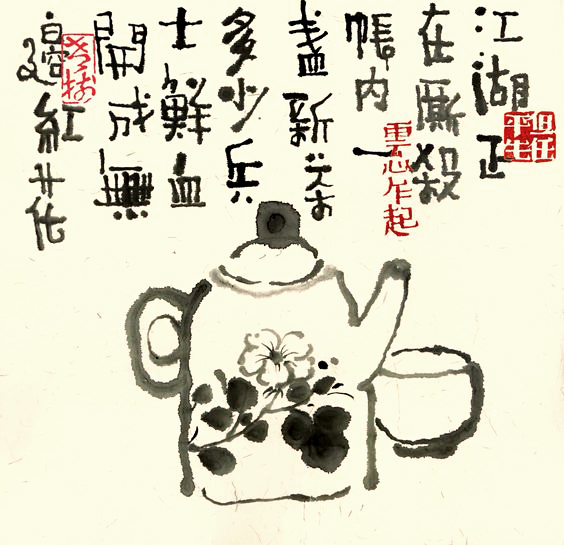 江湖正
在厮殺
帳内一
盞新茶
多少兵
士鮮血
開成無
邊紅花
老樹